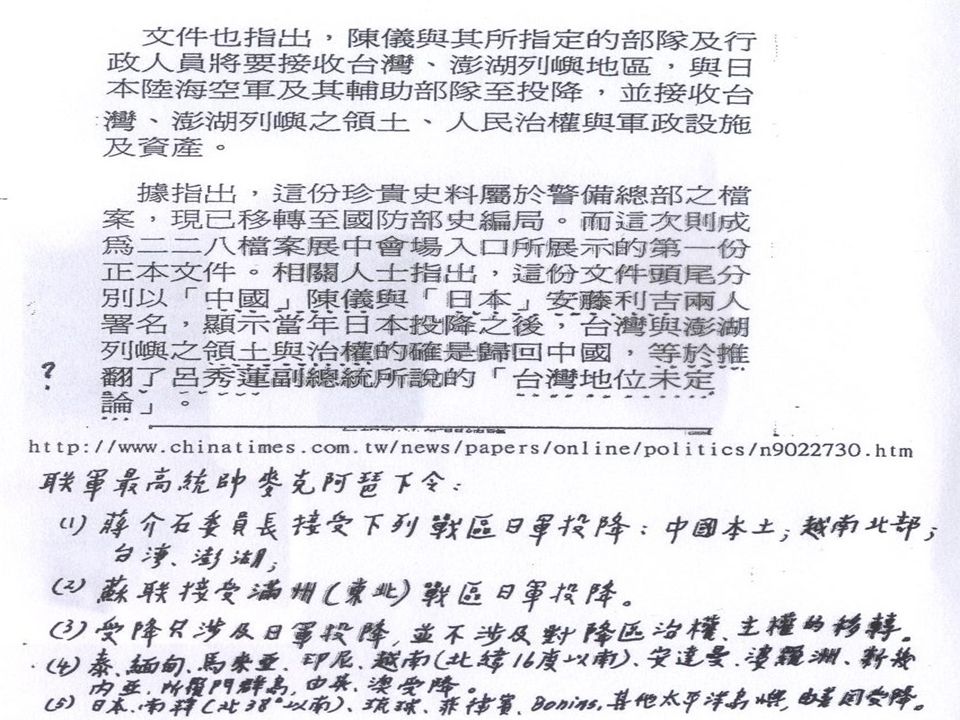 文件也指出，陳儀與其所指定的部隊及行
政人員將要接收台灣、澎湖列嶼地區，與日
本陸海空軍及其輔助部隊至投降，並接收台
灣、澎湖列嶼之領土、人民治權與軍政設施
及資產。
據指出，這份珍貴史料屬於警備總部之檔
案，現已移轉至國防部史編局。而這次則成
為二二八檔案展中會場入口所展示的第一份
正本文件。相關人士指出，這份文件頭尾分
別以「中國」陳儀與「日本」安藤利吉兩人
署名，顯示當年日本投降之後，台灣與澎湖
列嶼之領土與治權的確是歸回中國，等於推
? 翻了呂秀蓮副總統所說的「台灣地位未定
論」。
http://www.chinatimes.com.tw/news/papers/online/politics/n9022730.htm
联軍最高統帥麥克阿瑟下令：
(1) 蔣介石委員長接受下列戰區日軍投降：中國本土；越南北部；
台湾、澎湖；
(2) 蘇联接受滿州(東北)戰區日軍投降。
(3) 受降只涉及日軍投降，並不涉及對降區治權、主權的移轉。
(4) 泰、緬甸、馬來亚、印尼、越南(北緯16度以南)、安達曼、婆羅洲、新幾
內亚、所羅門群島，由英、澳受降。
(5) 日本、南韓(北38°以南)、琉球、菲律賓、Bonins，其他太平洋島嶼，由美國受降。